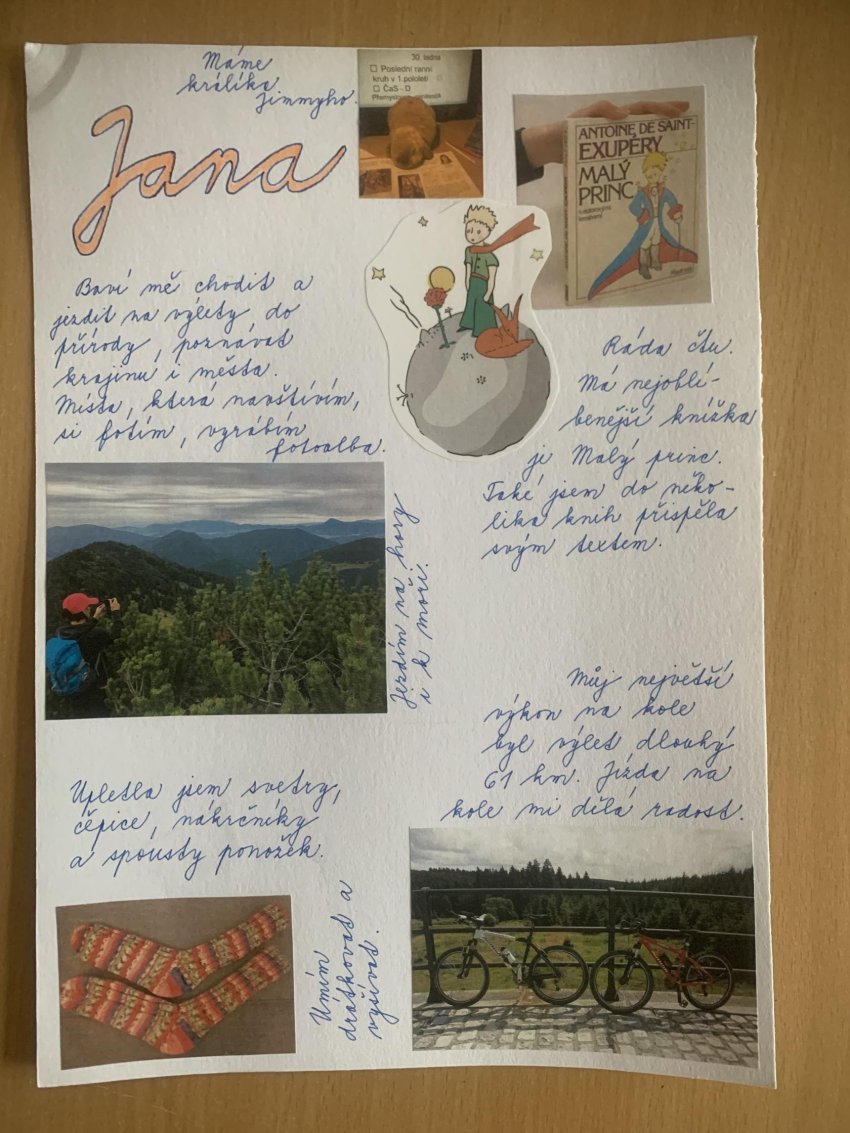 Máme
králíka
Jimmyho.
Jana
30. ledna
☐ Poslední ranní
kruh v 1.pololetí
☐ ČaS - D
ANTOINE DE SAINT-
EXUPÉRY
MALÝ
PRINC
Baví mě chodit a
jezdit na výlety do
přírody, poznávat
krajinu i města.
Místa, která navštívím,
si fotím, vyrábím
fotoalba.
Ráda čtu.
Má nejoblí-
benější knížka
je Malý princ.
Také jsem do něko-
lika knih přispěla
svým textem.
Jezdím na hory
i k moři.
Můj největší
výkon na kole
byl výlet dlouhý
61 km. Jízda na
kole mi dělá radost.
Upletla jsem svetry,
čepice, nákrčníky
a spousty ponožek.
Umím
drátkovat a
vyšívat.